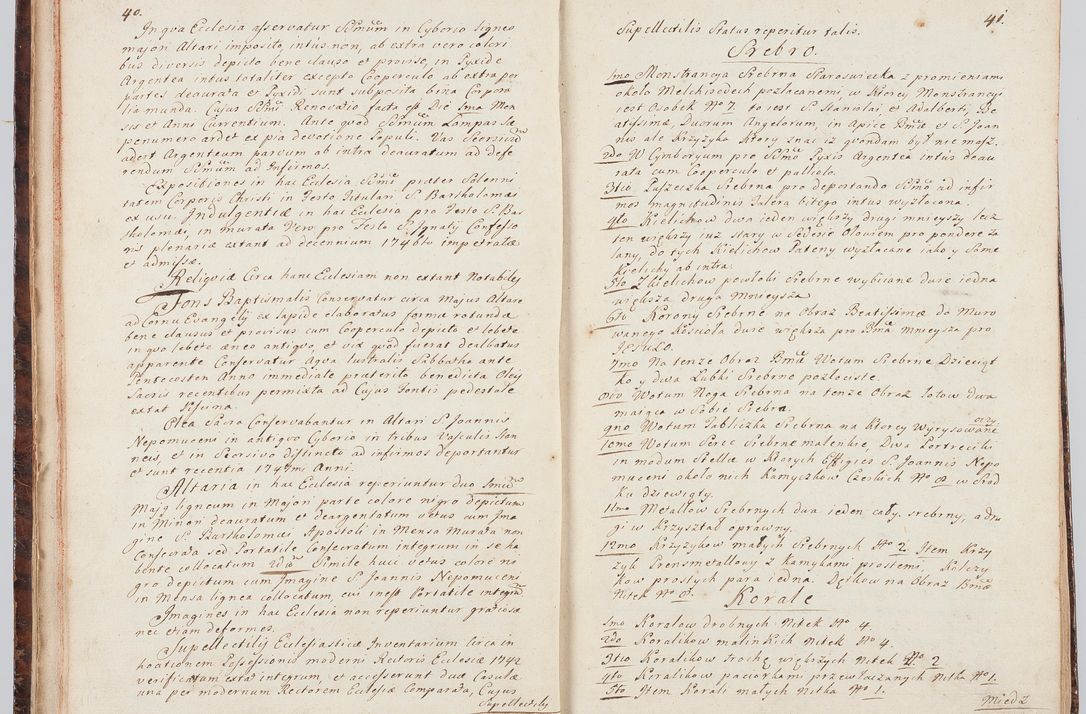 40.
In qva Ecclesia asservatur SSmum in Cyborio ligneo
majori Altari imposito, intus non, ab extra vero colori
bus diversis depicto bene clauso et proviso, in Pyxide
Argentea intus totaliter excepto Cooperculo ab extra per
partes deaurata et Pyxidi sunt subposita bina Corpora
lia munda. Cujus SSmi Renovatio facta est Die 5ma Men
sis et Anni Currentium. Ante quod SSmum Lampas sæ
penumero ardet ex pia devotione Populi. Vas
adest Argenteum parvum ab intra deauratum ad defe
rendum SSmum ad Infirmos.
Expositiones in hac Ecclesia SSmi præter Solenni
tatem Corporis Christi in Festo Titulari S. Bartholomæi
ex usu. Indulgentiæ in hac Ecclesia pro Festo S. Bar
tholomæi, in murata Vero pro Festo S. Ignatij Confesso
ris plenariæ extant ad decennium 1746to impetratæ
et admissæ.
Reliqviæ Circa hanc Ecclesiam non extant Notabiles
Fons Baptismalis Conservatur circa Majus Altare
ad Cornu Evangelij ex lapide elaboratus forma rotunda
bene clausus et provisus cum Cooperculo depicto et lebete
in qvo lebete æneo antiqvo, et vix qvod fuerat dealbatus
apparente Conservatur Aqva lustralis Sabbatho ante
Pentecosten Anno immediate præterito benedicta Oleis
Sacris recentibus permixta ad Cujus Fontis pedestale
extat Piscina.
Olea Sacra Conservabantur in Altari S. Joannis
Nepomuceni in antiqvo Cyborio in tribus Vasculis Stan
neis, et in Scorsivo distincto ad infirmos deportantur
et sunt recentia 1747mi Anni.
Altaria in hac Ecclesia reperiuntur duo 1mum
Majus ligneum in Majori parte colore nigro depictum
in Minori deauratum et deargentatum vetus cum Ima
gine S. Bartholomæi Apostoli in Mensa Murata non
Consecrata sed Portatile Consecratum integrum in se ha
bente collocatum 2dum Simile huic vetus colore ni
gro depictum cum Imagine S. Joannis Nepomuceni
in Mensa lignea collocatum, cui inest Portatile integrum
Imagines in hac Ecclesia non reperiuntur gratiosæ
nec etiam deformes.
Supellectilis Ecclesiasticæ Inventarium Circa in
hoationem Possessionis moderni Rectoris Ecclesiæ 1742
verificatum extat integrum, et accesserunt duæ Casulæ
una per modernum Rectorem Ecclesiæ Comparata, Cujus
Supellectilis
41.
Supellectilis Status reperitur talis.
Srebro.
1mo Monstrancya Srebrna Staroswiecka z promieniami
około Melchisedech pozłacanemi, w ktorey Monstrancyi
iest Osobek No 7. to iest S. Stanislai, et Adalberti, Be
atissimæ, Duorum Angelorum, in Apice Bmæ et S. Joan
nis ale Krzyżyka ktory znać iż qvondam był nie masz.
2do W Cymboryum pro SSmo Pyxis Argentea intus deau
rata cum Cooperculo et palliolo.
3tio Puszeczka Srebrna pro deportando SSmo ad infir
mos magnitudinis Talera bitego intus wyzłocona.
4to Kielichow dwa ieden większy drugi mnieyszy lecz
ten większy iuż stary w Sedesie Ołowiem pro pondere za
lany, do tych Kielichow Pateny wyzłacane iako y Same
Kielichy ab intra.
5to Z kielichow powłoki Srebrne wybijane dwie iedna
większa druga Mnieysza
6to Korony Srebrne na Obraz Beatissimæ do Muro
wanego Kościoła dwie większa pro Bma mnieysza pro
JESULO.
7mo Na tenże Obraz Bmæ Wotum Srebrne Dzieciąt
ko y dwa Łubki Srebrne pozłociste.
8vo Wotum Noga Srebrna na tenże Obraz łotow dwa
maiąca w Sobie Srebra.
9no Wotum Tabliczka Srebrna na ktorey wyrysowane oczy
10mo Wotum Serce Srebrne malenkie, Dwa Portreciki
in modum Stellæ w ktorych Effigies S. Joannis Nepo
muceni około nich Kamyczkow Czeskich No 8. w Srod
ku dziewiąty.
11mo Metallow Srebrnych dwa ieden cały srebrny, a dru
gi w Krzyształ oprawny.
12mo Krzyżykow małych Srebrnych No 2. Item Krzy
żyk Prensmetallowy z kamykami prostemi, Kolczy
kow prostych para iedna. na Obraz Bmæ
Nitek No 8.
Korale
1mo Koralow drobnych Nitek No 4.
2do Koralikow malinkich Nitek No 4.
3tio Koralikow Trochę większych Nitek No 2
4to Koralikow paciorkami przewłaczanych Nitka No 1.
5to Item Korali małych Nitka No 1.
Miedz